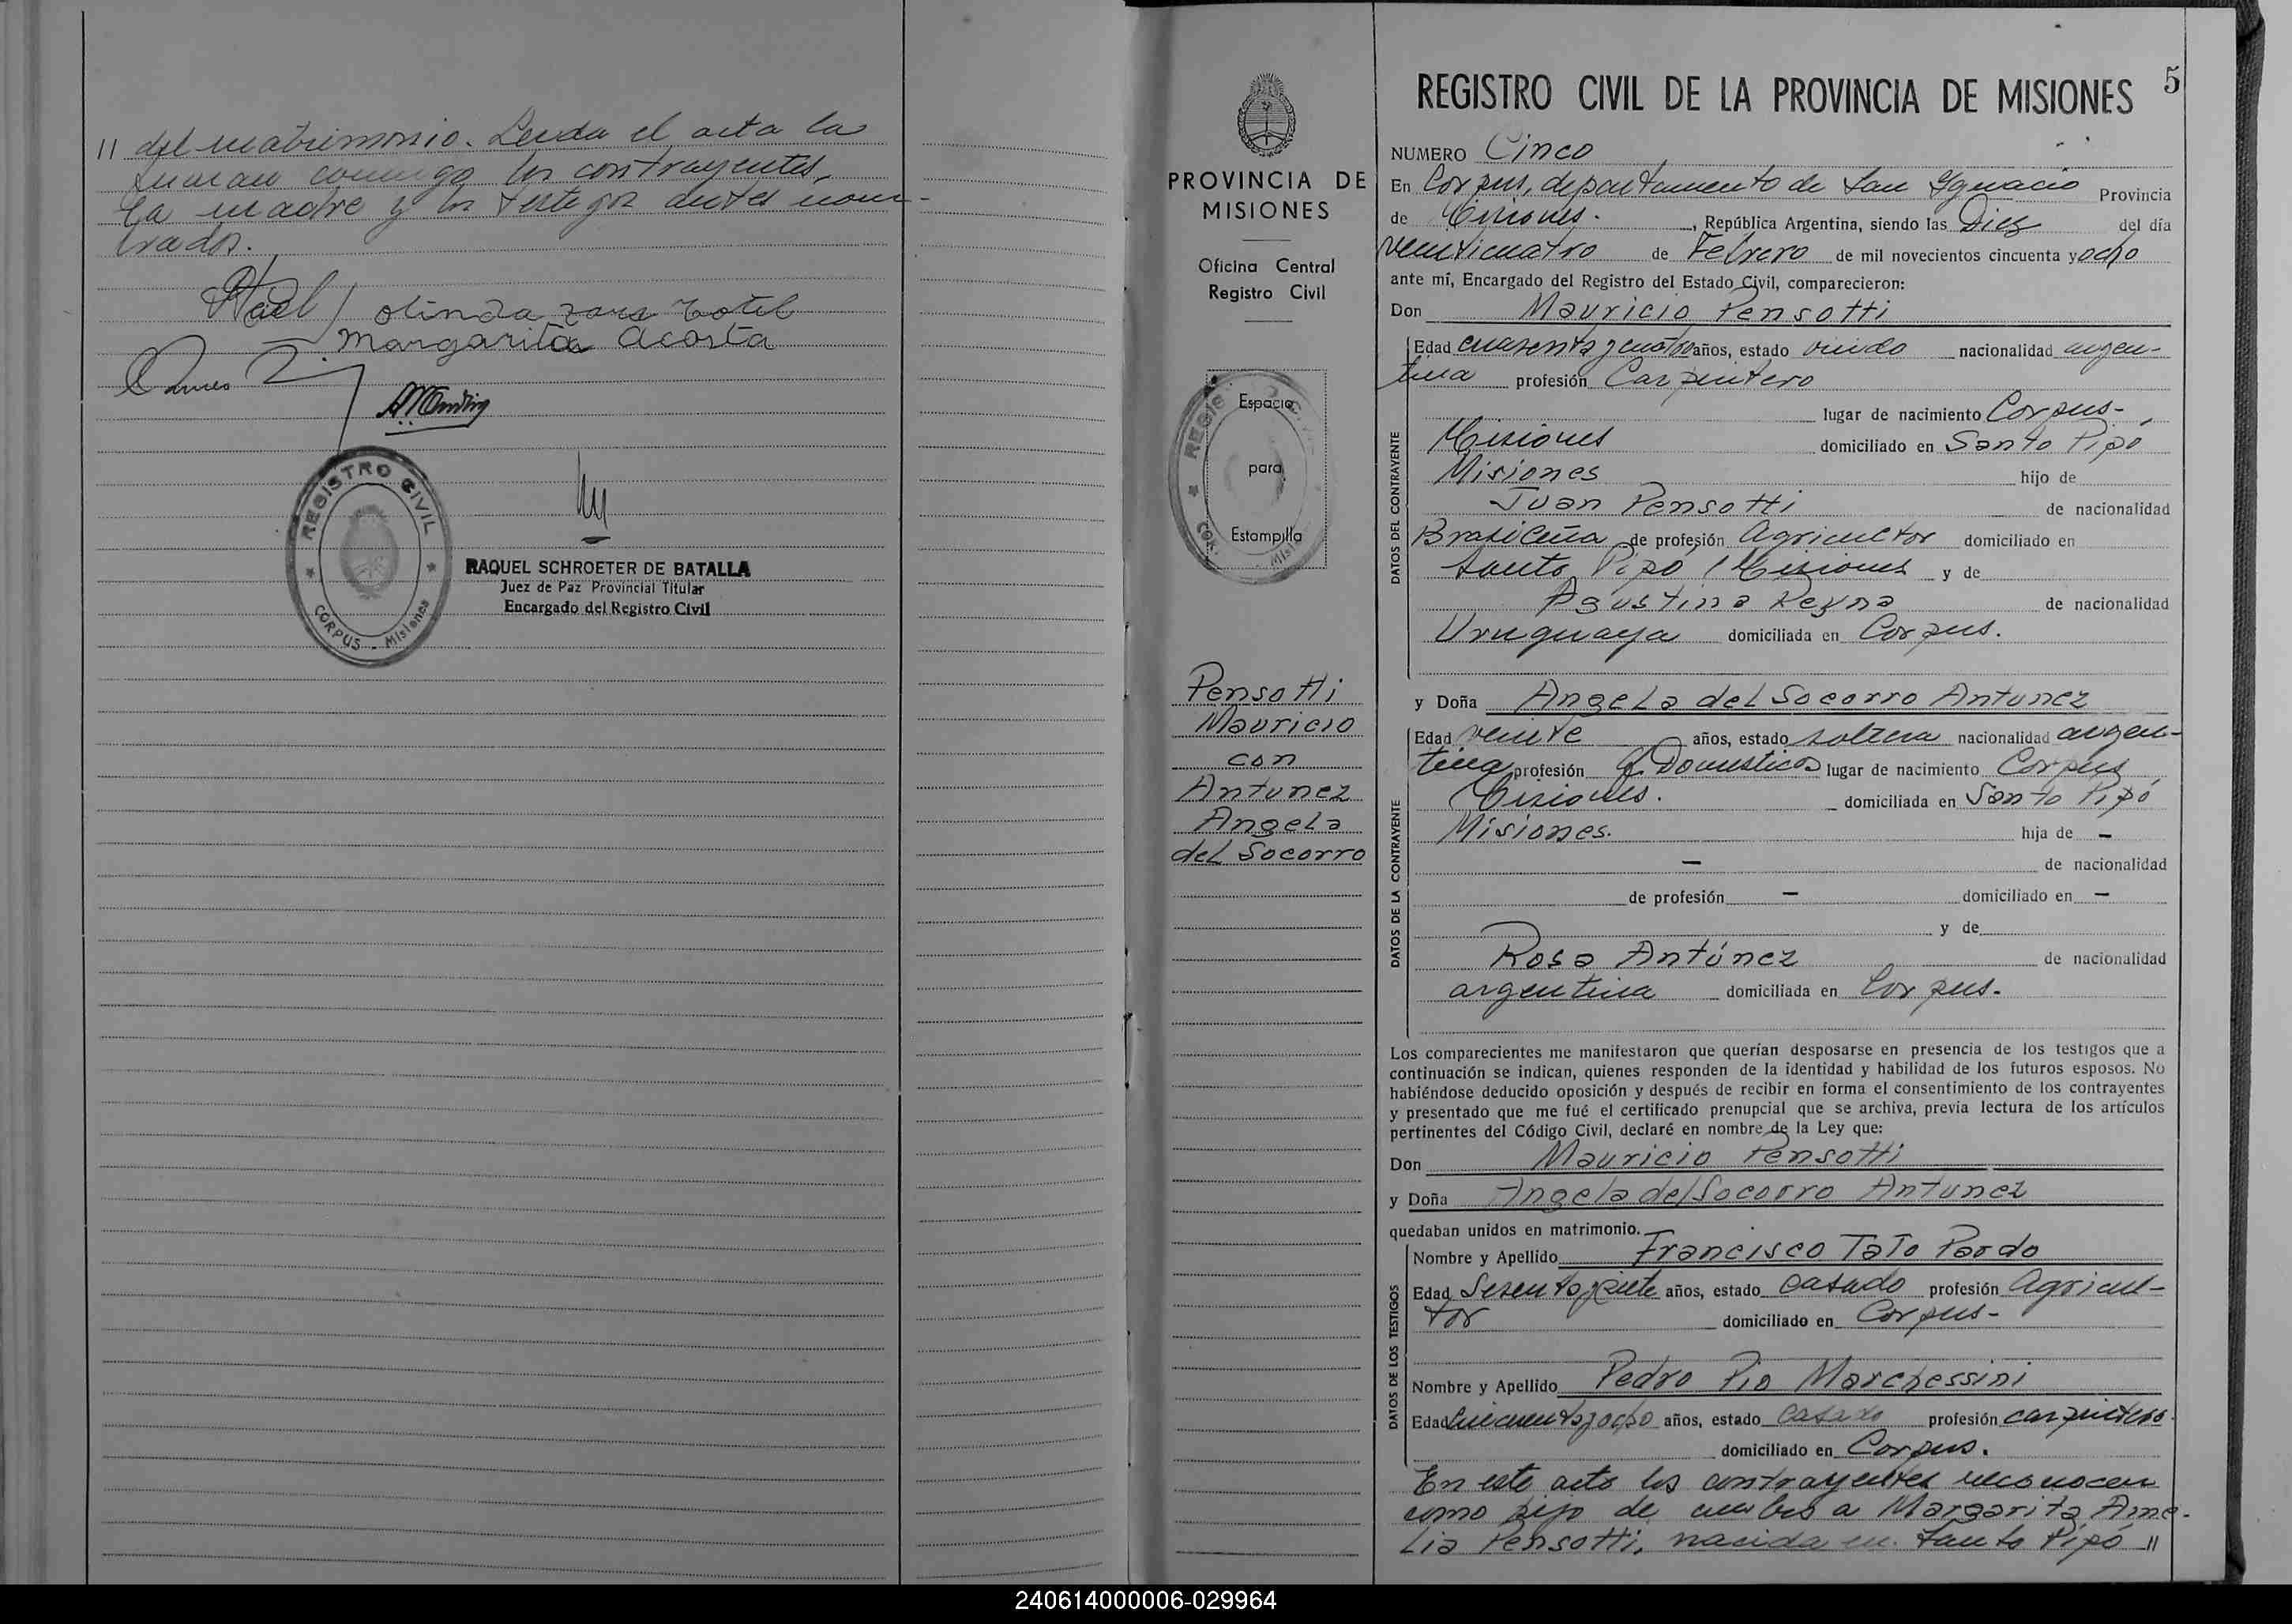 // del matrimonio. Leida el acta la
firman conmigo los contrayentes,
la madre y los testigos antes nom-
brados.
olinda zars
Margarita Acosta
REGISTRO CIVIL
CORPUS - Misiones
RAQUEL SCHROETER DE BATALLA
Juez de Paz Provincial Titular
Encargado del Registro Civil
PROVINCIA DE
MISIONES
Oficina Central
Registro Civil
Espacio
para
Estampilla
Pensotti
Mauricio
con
Antunez
Angela
del Socorro
REGISTRO CIVIL DE LA PROVINCIA DE MISIONES 5
NUMERO Cinco
En Corpus, departamento de San Ygnacio Provincia
de Misiones. , República Argentina, siendo las Diez del día
veinticuatro de Febrero de mil novecientos cincuenta y ocho
ante mí, Encargado del Registro del Estado Civil, comparecieron:
Don Mauricio Pensotti
DATOS DEL CONTRAYENTE
Edad cuarenta y cuatro años, estado viudo nacionalidad argen-
tina profesión Carpintero
lugar de nacimiento Corpus-
Misiones domiciliado en Santo Pipó
Misiones hijo de
Juan Pensotti de nacionalidad
Brasileña de profesión Agricultor domiciliado en
Santo Pipó, Misiones y de
Agustina Reyna de nacionalidad
Uruguaya domiciliada en Corpus.
y Doña Angela del Socorro Antunez
DATOS DE LA CONTRAYENTE
Edad veinte años, estado soltera nacionalidad argen-
tina profesión Q. Domesticos lugar de nacimiento Corpus
Misiones. domiciliada en Santo Pipó
Misiones. hija de –
– de nacionalidad
de profesión – domiciliado en –
y de
Rosa Antúnez de nacionalidad
argentina domiciliada en Corpus.
Los comparecientes me manifestaron que querían desposarse en presencia de los testigos que a
continuación se indican, quienes responden de la identidad y habilidad de los futuros esposos. No
habiéndose deducido oposición y después de recibir en forma el consentimiento de los contrayentes
y presentado que me fué el certificado prenupcial que se archiva, previa lectura de los artículos
pertinentes del Código Civil, declaré en nombre de la Ley que:
Don Mauricio Pensotti
y Doña Angela del Socorro Antunez
quedaban unidos en matrimonio.
DATOS DE LOS TESTIGOS
Nombre y Apellido Francisco Tato Pardo
Edad Sesenta y siete años, estado casado profesión Agricul-
tor domiciliado en Corpus-
Nombre y Apellido Pedro Pio Marchessini
Edad Cincuenta y ocho años, estado casado profesión carpintero.
domiciliado en Corpus.
En este acto los contrayentes reconocen
como hijo de ambos a Margarita Ame-
lia Pensotti, nacida en Santo Pipó //
240614000006-029964